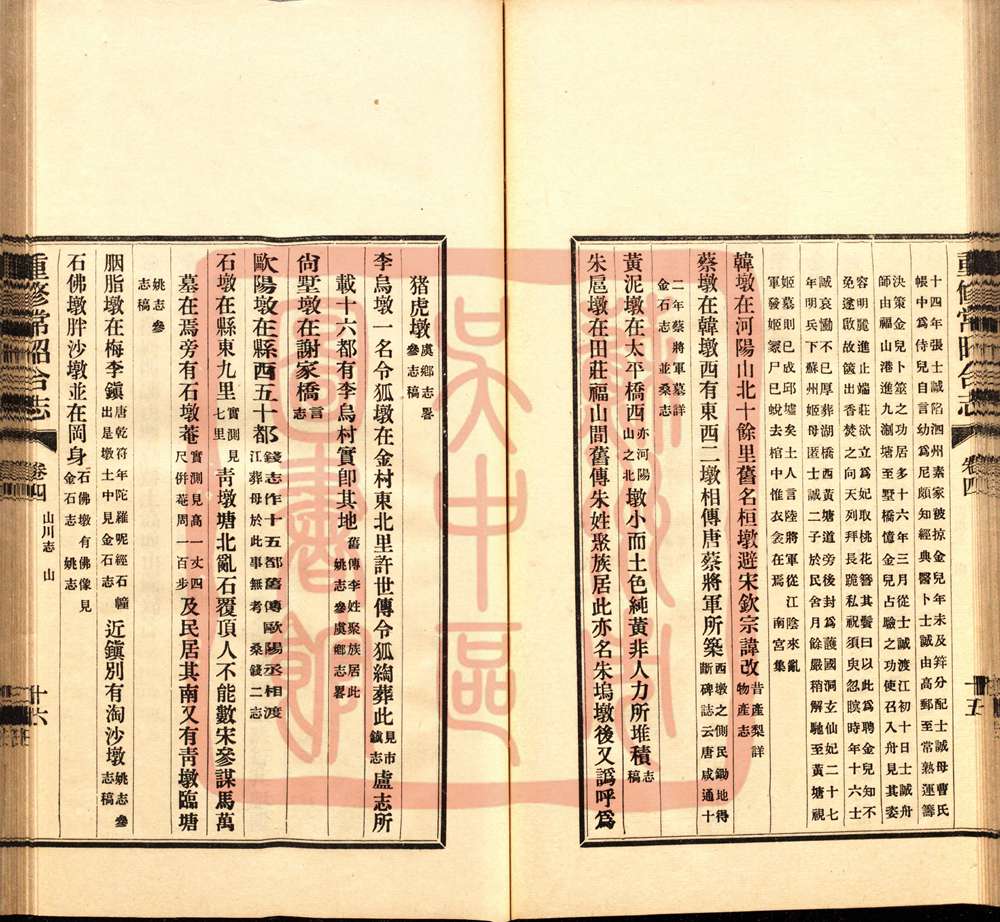 重修常昭合志
卷四
十五
十四年張士誠陷泗州素家被掠金兒年未及笄分配士誠母曹氏
帳中爲侍兒自言幼爲尼頗知經典醫卜士誠由高郵至常熟運籌
決策金兒卜筮之功居多十六年三月從士誠渡江初十日士誠舟
師由福山港進九澗塘至墅橋憶金兒占驗之功使召入舟見其姿
容明麗進止端莊欲立爲妃取桃花簪其髻曰以此爲聘金兒知不
免遂啟故篋出香焚之向天列拜長跪私祝須臾忽脘時年十六士
誠哀慟不已厚葬湖橋西黃塘道旁後封爲護國洞玄仙妃二十七
年明兵下蘇州姬母匿士誠二子於民舍月餘嚴稍解馳至黃塘視
姬墓則已成邱墟矣土人言陸將軍從江陰來亂
軍發姬冢尸已蛻去棺中惟衣衾在焉 南宮集
韓墩在河陽山北十餘里舊名桓墩避宋欽宗諱改昔產梨詳
物產志
蔡墩在韓墩西有東西二墩相傳唐蔡將軍所築西墩之側民鋤地得
斷碑誌云唐咸通十
二年蔡將軍墓詳
金石志 並桑志
黃泥墩在太平橋西亦河陽
山之北墩小而土色純黃非人力所堆積志
稿
朱扈墩在田莊福山間舊傳朱姓聚族居此亦名朱塢墩後又譌呼爲
猪虎墩虞鄉志畧
參志稿
李烏墩一名令狐墩在金村東北里許世傳令狐綯葬此見市
鎮志盧志所
載十六都有李烏村實卽其地舊傳李姓聚族居此
姚志參虞鄉志畧
尙墅墩在謝家橋言
志
歐陽墩在縣西五十都錢志作十五都舊傳歐陽丞相渡
江葬母於此事無考 桑錢二志
石墩在縣東九里實測見
七里靑墩塘北亂石覆頂人不能數宋參謀馬萬
墓在焉旁有石墩菴實測見高一丈四
尺併菴周一百步及民居其南又有靑墩臨塘
姚志參
志稿
胭脂墩在梅李鎭唐乾符年陀羅呢經石幢
出是墩土中見金石志近鎭別有淘沙墩姚志參
志稿
石佛墩胖沙墩並在岡身石佛墩有佛像見
金石志 姚志
重修常昭合志
卷四
山川志 山
十六